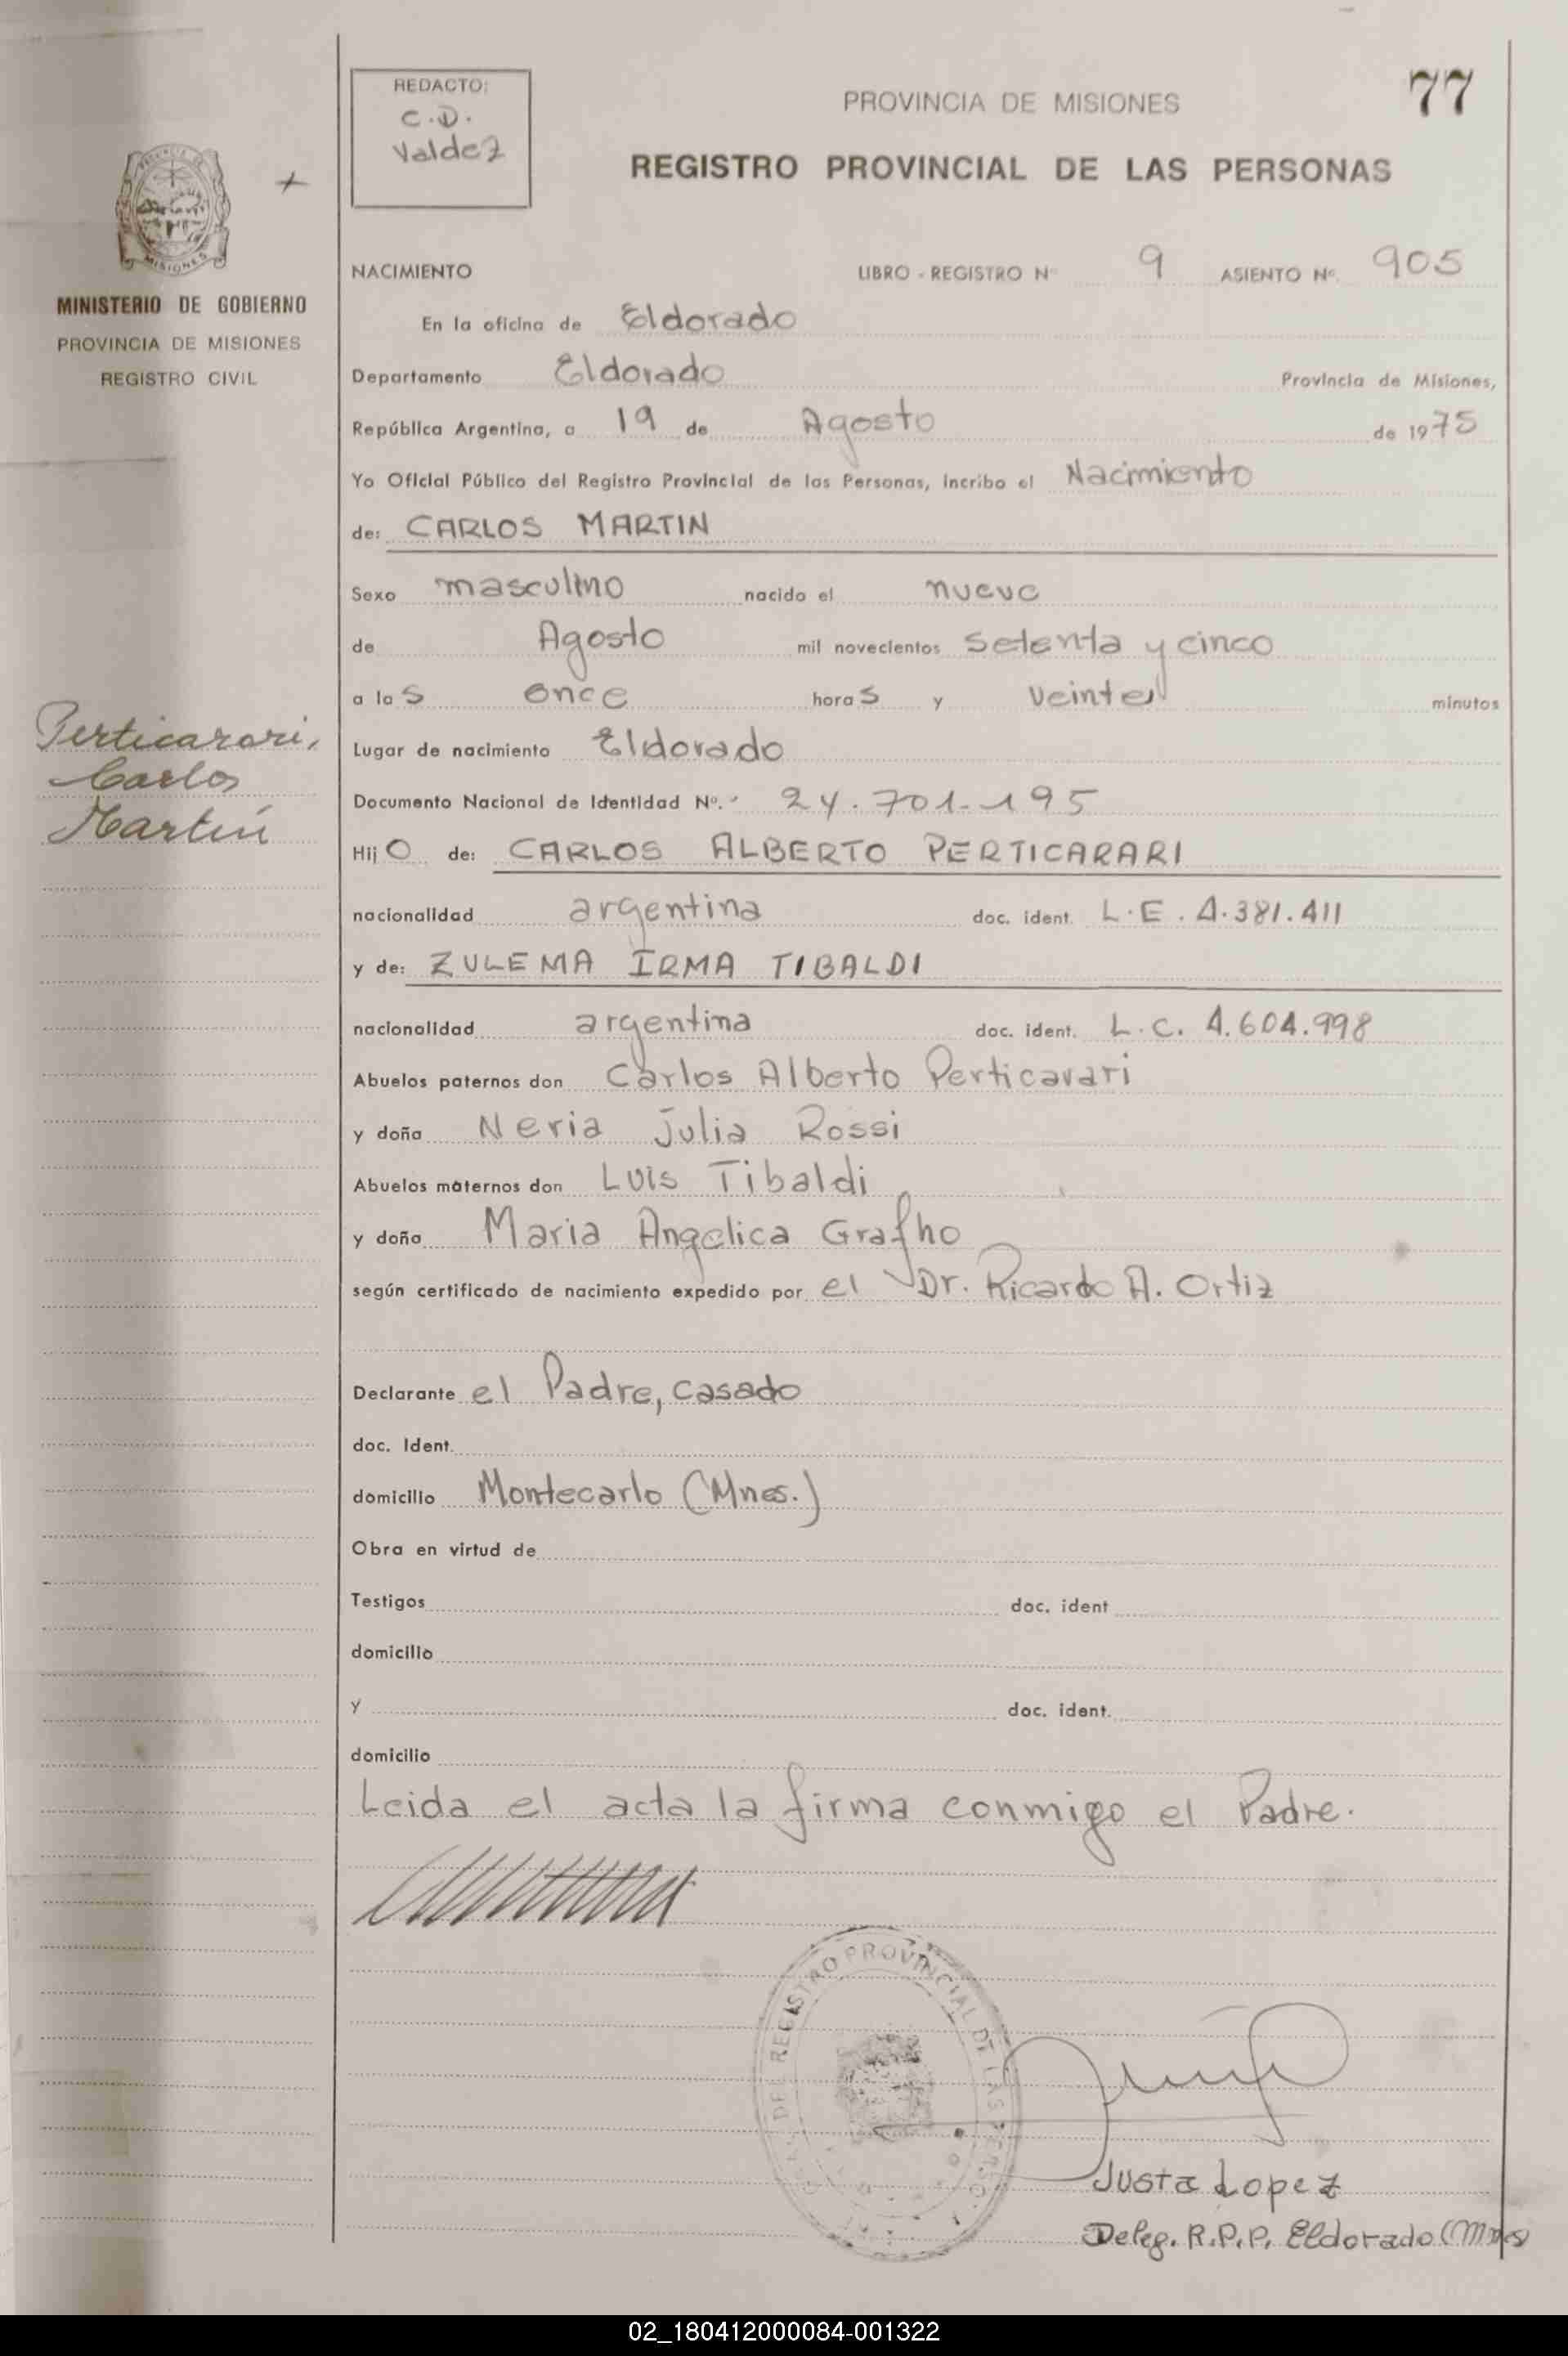 REDACTO:
C.D.
Valdez
PROVINCIA DE MISIONES
77
REGISTRO PROVINCIAL DE LAS PERSONAS
MISIONES
MINISTERIO DE GOBIERNO
PROVINCIA DE MISIONES
REGISTRO CIVIL
NACIMIENTO LIBRO - REGISTRO Nº 9 ASIENTO Nº 905
En la oficina de Eldorado
Departamento Eldorado Provincia de Misiones,
República Argentina, a 19 de Agosto de 1975
Yo Oficial Público del Registro Provincial de las Personas, incribo el Nacimiento
de: CARLOS MARTIN
Sexo masculino nacido el nueve
de Agosto mil novecientos setenta y cinco
a las once horas y veinte minutos
Perticarari,
Carlos
Martín
Lugar de nacimiento Eldorado
Documento Nacional de Identidad Nº. 24.701.195
Hijo de: CARLOS ALBERTO PERTICARARI
nacionalidad argentina doc. ident. L.E. 4.381.411
y de: ZULEMA IRMA TIBALDI
nacionalidad argentina doc. ident. L.C. 4.604.998
Abuelos paternos don Carlos Alberto Perticarari
y doña Neria Julia Rossi
Abuelos maternos don Luis Tibaldi
y doña Maria Angelica
según certificado de nacimiento expedido por el Dr. Ricardo A. Ortiz
Declarante el Padre, casado
doc. Ident.
domicilio Montecarlo (Mnes.)
Obra en virtud de
Testigos doc. ident
domicilio
y doc. ident.
domicilio
Leida el acta la firma conmigo el Padre.
DEL REGISTRO PROVINCIAL DE LAS
Justa Lopez
Deleg. R.P.P. Eldorado (Mnes)
02_180412000084-001322